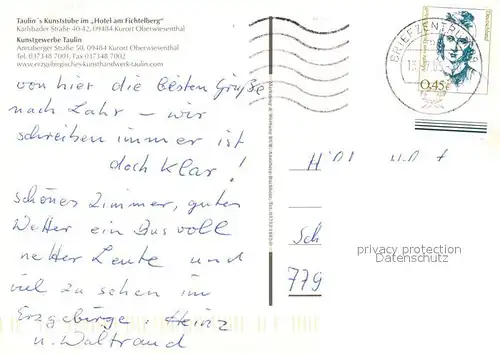 Taulin´s Kunststube im „Hotel am Fichtelberg“
Karlsbader Straße 40-42, 09484 Kurort Oberwiesenthal
Kunstgewerbe Taulin
Annaberger Straße 50, 09484 Kurort Oberwiesenthal
Tel. 037348 7091, Fax 037348 7002
www.erzgebirgischeskunsthandwerk-taulin.com
BRIEFZENTRUM
0,45€
von hier die besten Grüße
nach Lahr – wir
schreiben immer ist
doch klar!
schönes Zimmer, gutes
Wetter ein Bus voll
netter Leute und
viel zu sehen im
Erzgebirge. Heinz
u. Waltraud
Sch
779
privacy protection
Datenschutz